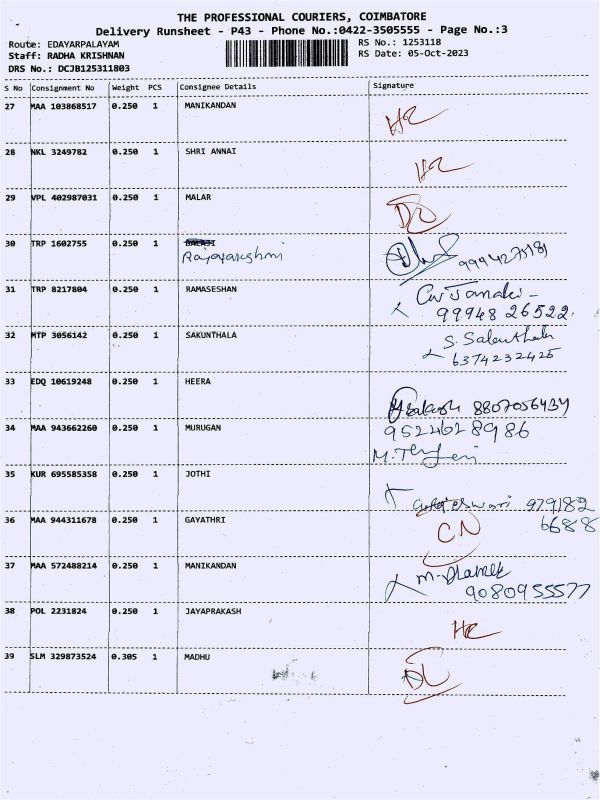 THE PROFESSIONAL COURIERS, COIMBATORE
Delivery Runsheet - P43 - Phone No.:0422-3505555 - Page No.:3
Route: EDAYARPALAYAM RS No.: 1253118
Staff: RADHA KRISHNAN RS Date: 05-Oct-2023
DRS No.: DCJB125311803
S No Consignment No Weight PCS Consignee Details Signature
27 MAA 103868517 0.250 1 MANIKANDAN
28 NKL 3249782 0.250 1 SHRI ANNAI
29 VPL 402987031 0.250 1 MALAR
30 TRP 1602755 0.250 1 BALAJI
31 TRP 8217804 0.250 1 RAMASESHAN
99948 26522
32 MTP 3056142 0.250 1 SAKUNTHALA
6374232425
33 EDQ 10619248 0.250 1 HEERA
8807056437
34 MAA 943662260 0.250 1 MURUGAN
35 KUR 695585358 0.250 1 JOTHI
979182
6688
36 MAA 944311678 0.250 1 GAYATHRI CN
37 MAA 572488214 0.250 1 MANIKANDAN
9080955577
38 POL 2231824 0.250 1 JAYAPRAKASH
39 SLM 329873524 0.305 1 MADHU